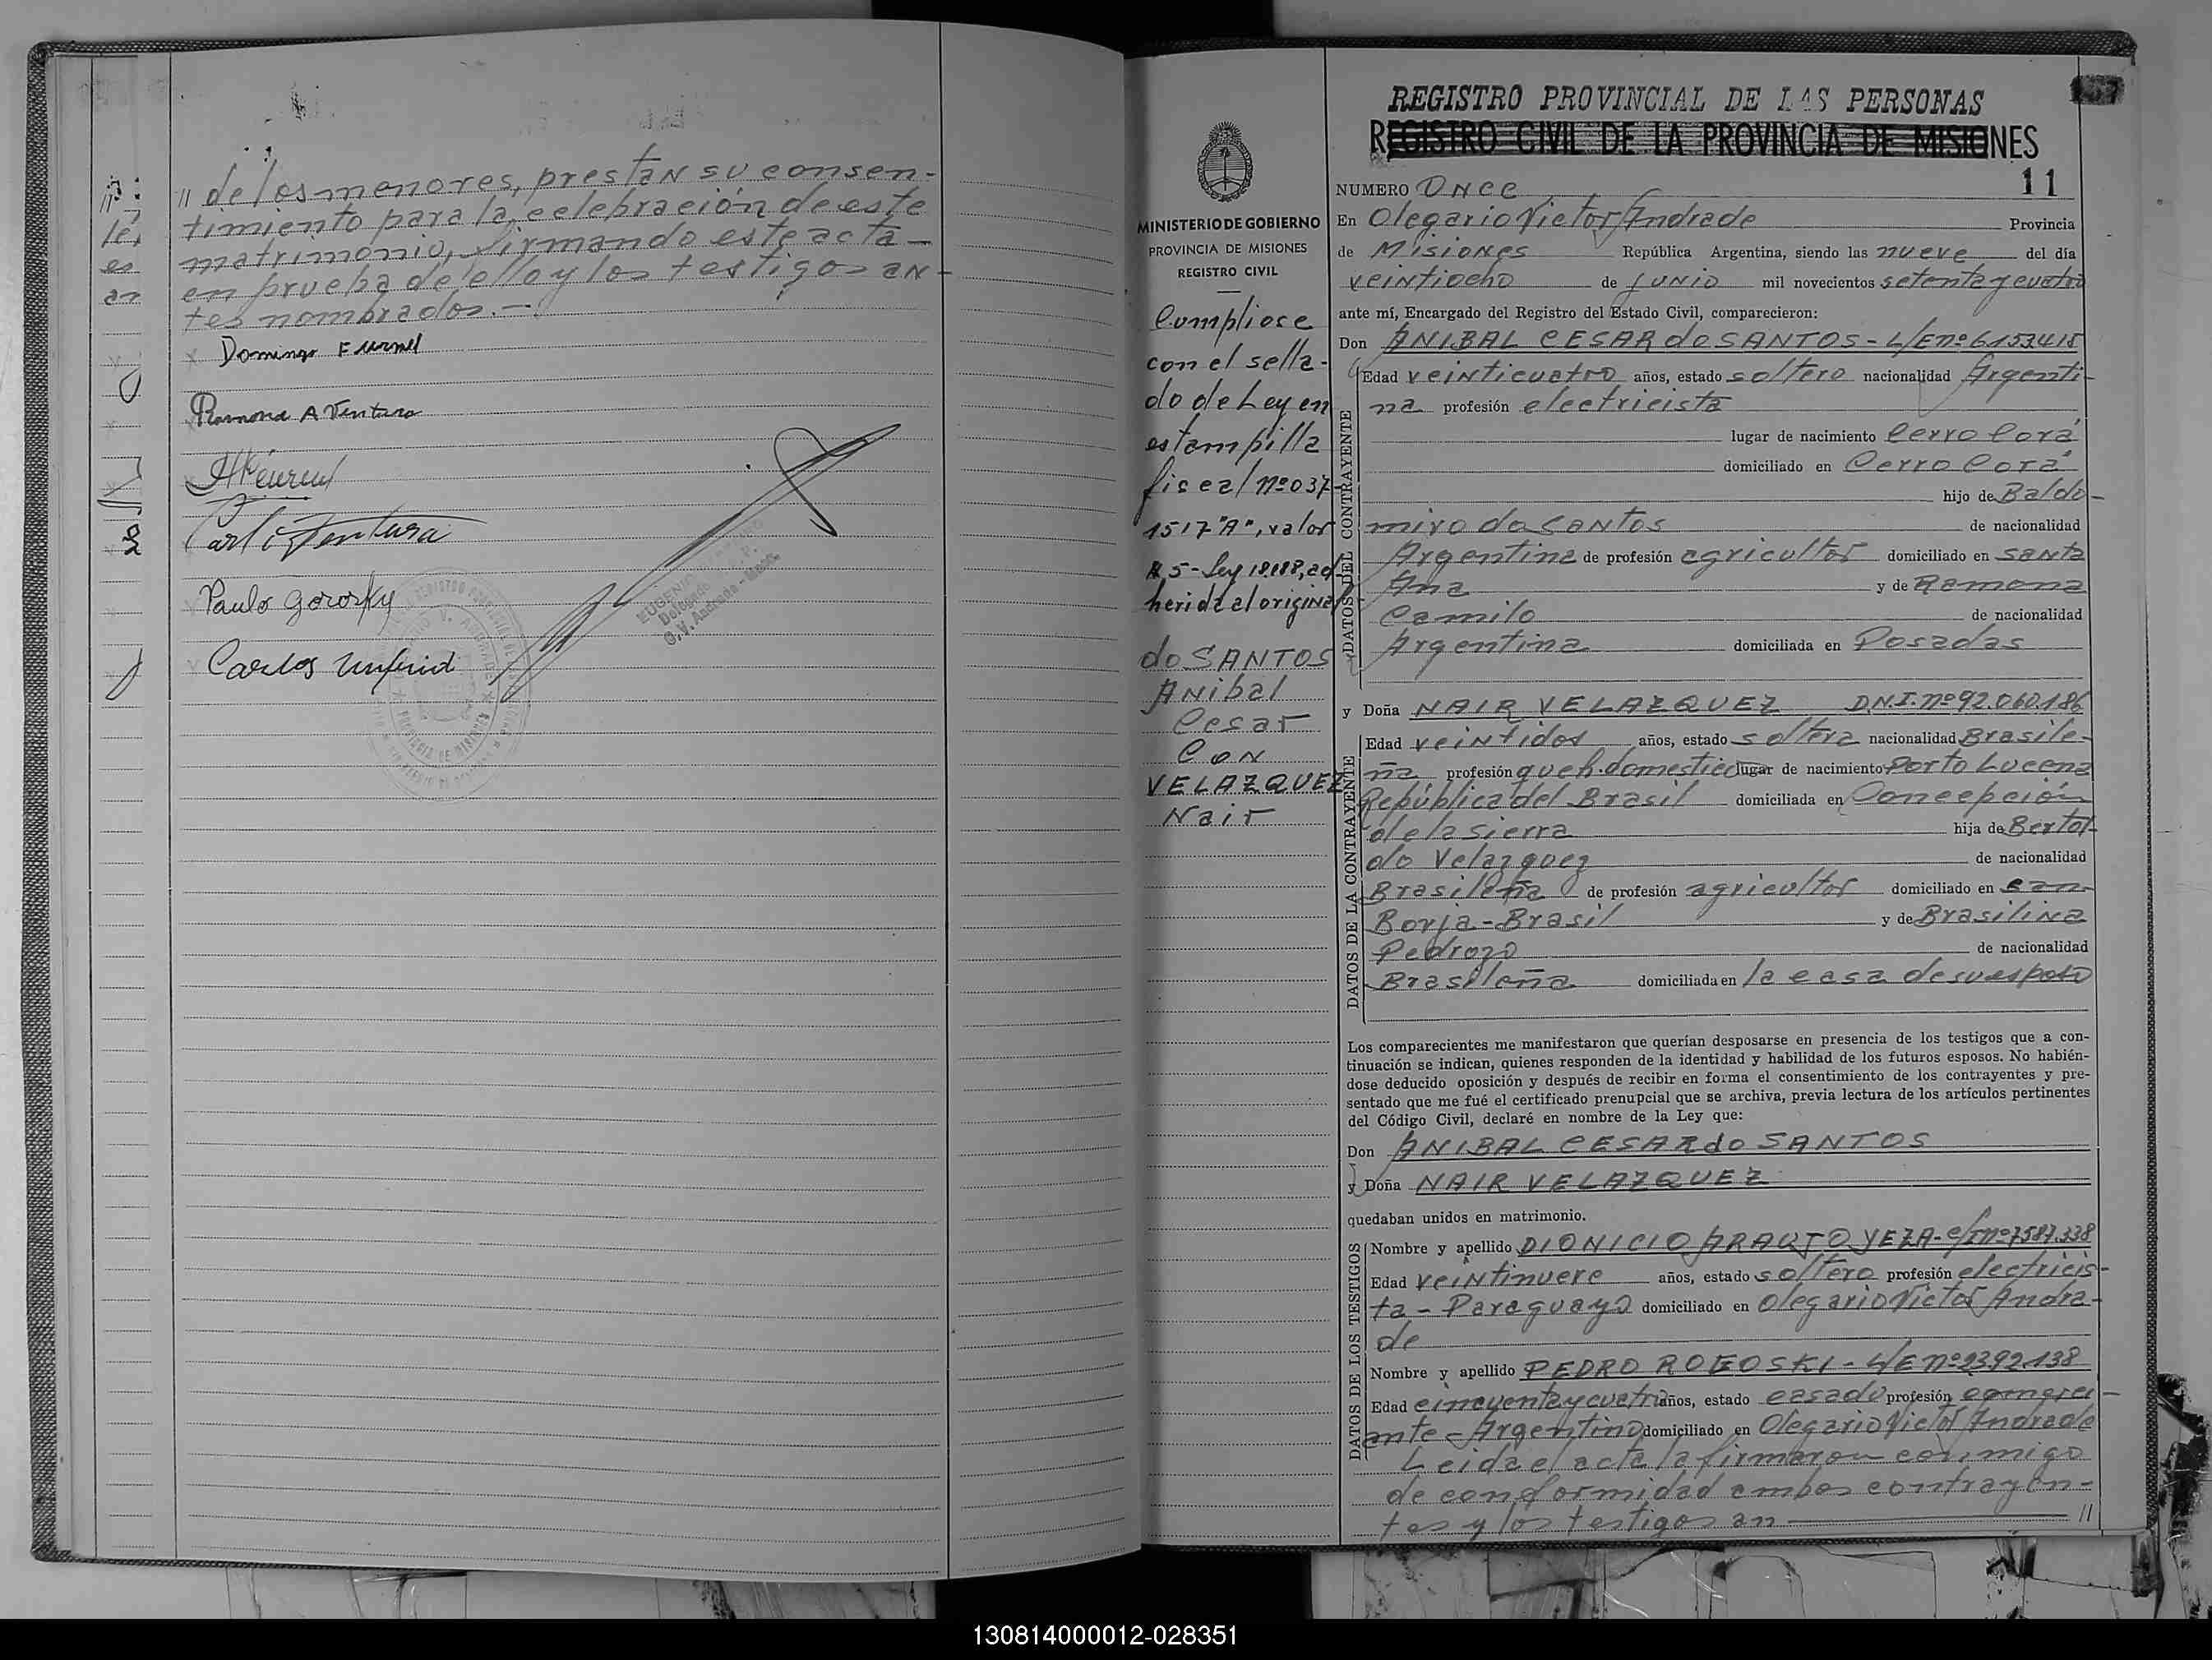 " de los menores, prestan su consen-
timiento para la celebración de este
matrimonio, firmando este acta -
en prueba de ello y los testigos an-
tes nombrados.-
Domingo
Ramona A Ventura
Carl Ventura
Paulo Gororky
Carlos
EUGENIO
Delegado
O.V. Andrade - Mnes.
REGISTRO PROVINCIAL DE LAS PERSONAS
REGISTRO CIVIL DE LA PROVINCIA DE MISIONES
11
MINISTERIO DE GOBIERNO
PROVINCIA DE MISIONES
REGISTRO CIVIL
Cumpliose
con el sella-
do de Ley en
estampilla
fiscal nº 037-
1517 "A", valor
$ 5- Ley 18.188, ad-
herida al original
do SANTOS
Anibal
Cesar
Con
VELAZQUEZ
Nair
NUMERO Once
En Olegario Victor Andrade Provincia
de Misiones República Argentina, siendo las nueve del día
veintiocho de Junio mil novecientos setenta y cuatro
ante mí, Encargado del Registro del Estado Civil, comparecieron:
DATOS DEL CONTRAYENTE
Don ANIBAL CESAR do SANTOS - L/E nº 6153415
Edad veinticuatro años, estado soltero nacionalidad Argenti-
na profesión electricista
lugar de nacimiento Cerro Corá
domiciliado en Cerro Corá
hijo de Baldo-
miro do Santos de nacionalidad
Argentina de profesión agricultor domiciliado en Santa
Ana y de Ramona
Camilo de nacionalidad
Argentina domiciliada en Posadas
DATOS DE LA CONTRAYENTE
y Doña NAIR VELAZQUEZ D.N.I. nº 92.060.186
Edad veintidos años, estado soltera nacionalidad Brasile-
ña profesión queh. domestico lugar de nacimiento Porto Lucena
República del Brasil domiciliada en Concepción
de la Sierra hija de Bertol-
do Velazquez de nacionalidad
Brasileña de profesión agricultor domiciliado en San
Borja - Brasil y de Brasilina
Pedrozo de nacionalidad
Brasileña domiciliada en la casa de su esposo
Los comparecientes me manifestaron que querían desposarse en presencia de los testigos que a con-
tinuación se indican, quienes responden de la identidad y habilidad de los futuros esposos. No habién-
dose deducido oposición y después de recibir en forma el consentimiento de los contrayentes y pre-
sentado que me fué el certificado prenupcial que se archiva, previa lectura de los artículos pertinentes
del Código Civil, declaré en nombre de la Ley que:
Don ANIBAL CESAR do SANTOS
y Doña NAIR VELAZQUEZ
quedaban unidos en matrimonio.
DATOS DE LOS TESTIGOS
Nombre y apellido DIONICIO ARAUJO YEZA - C/I nº 7587.338
Edad veintinueve años, estado soltero profesión electricis-
ta - Paraguayo domiciliado en Olegario Victor Andra-
de
Nombre y apellido PEDRO ROGOSKI - L/E nº 2392.138
Edad cincuenta y cuatro años, estado casado profesión comerci-
ante - Argentino domiciliado en Olegario Victor Andrade
Leida el acta la firmaron conmigo
de conformidad ambos contrayen-
tes y los testigos an "
130814000012-028351